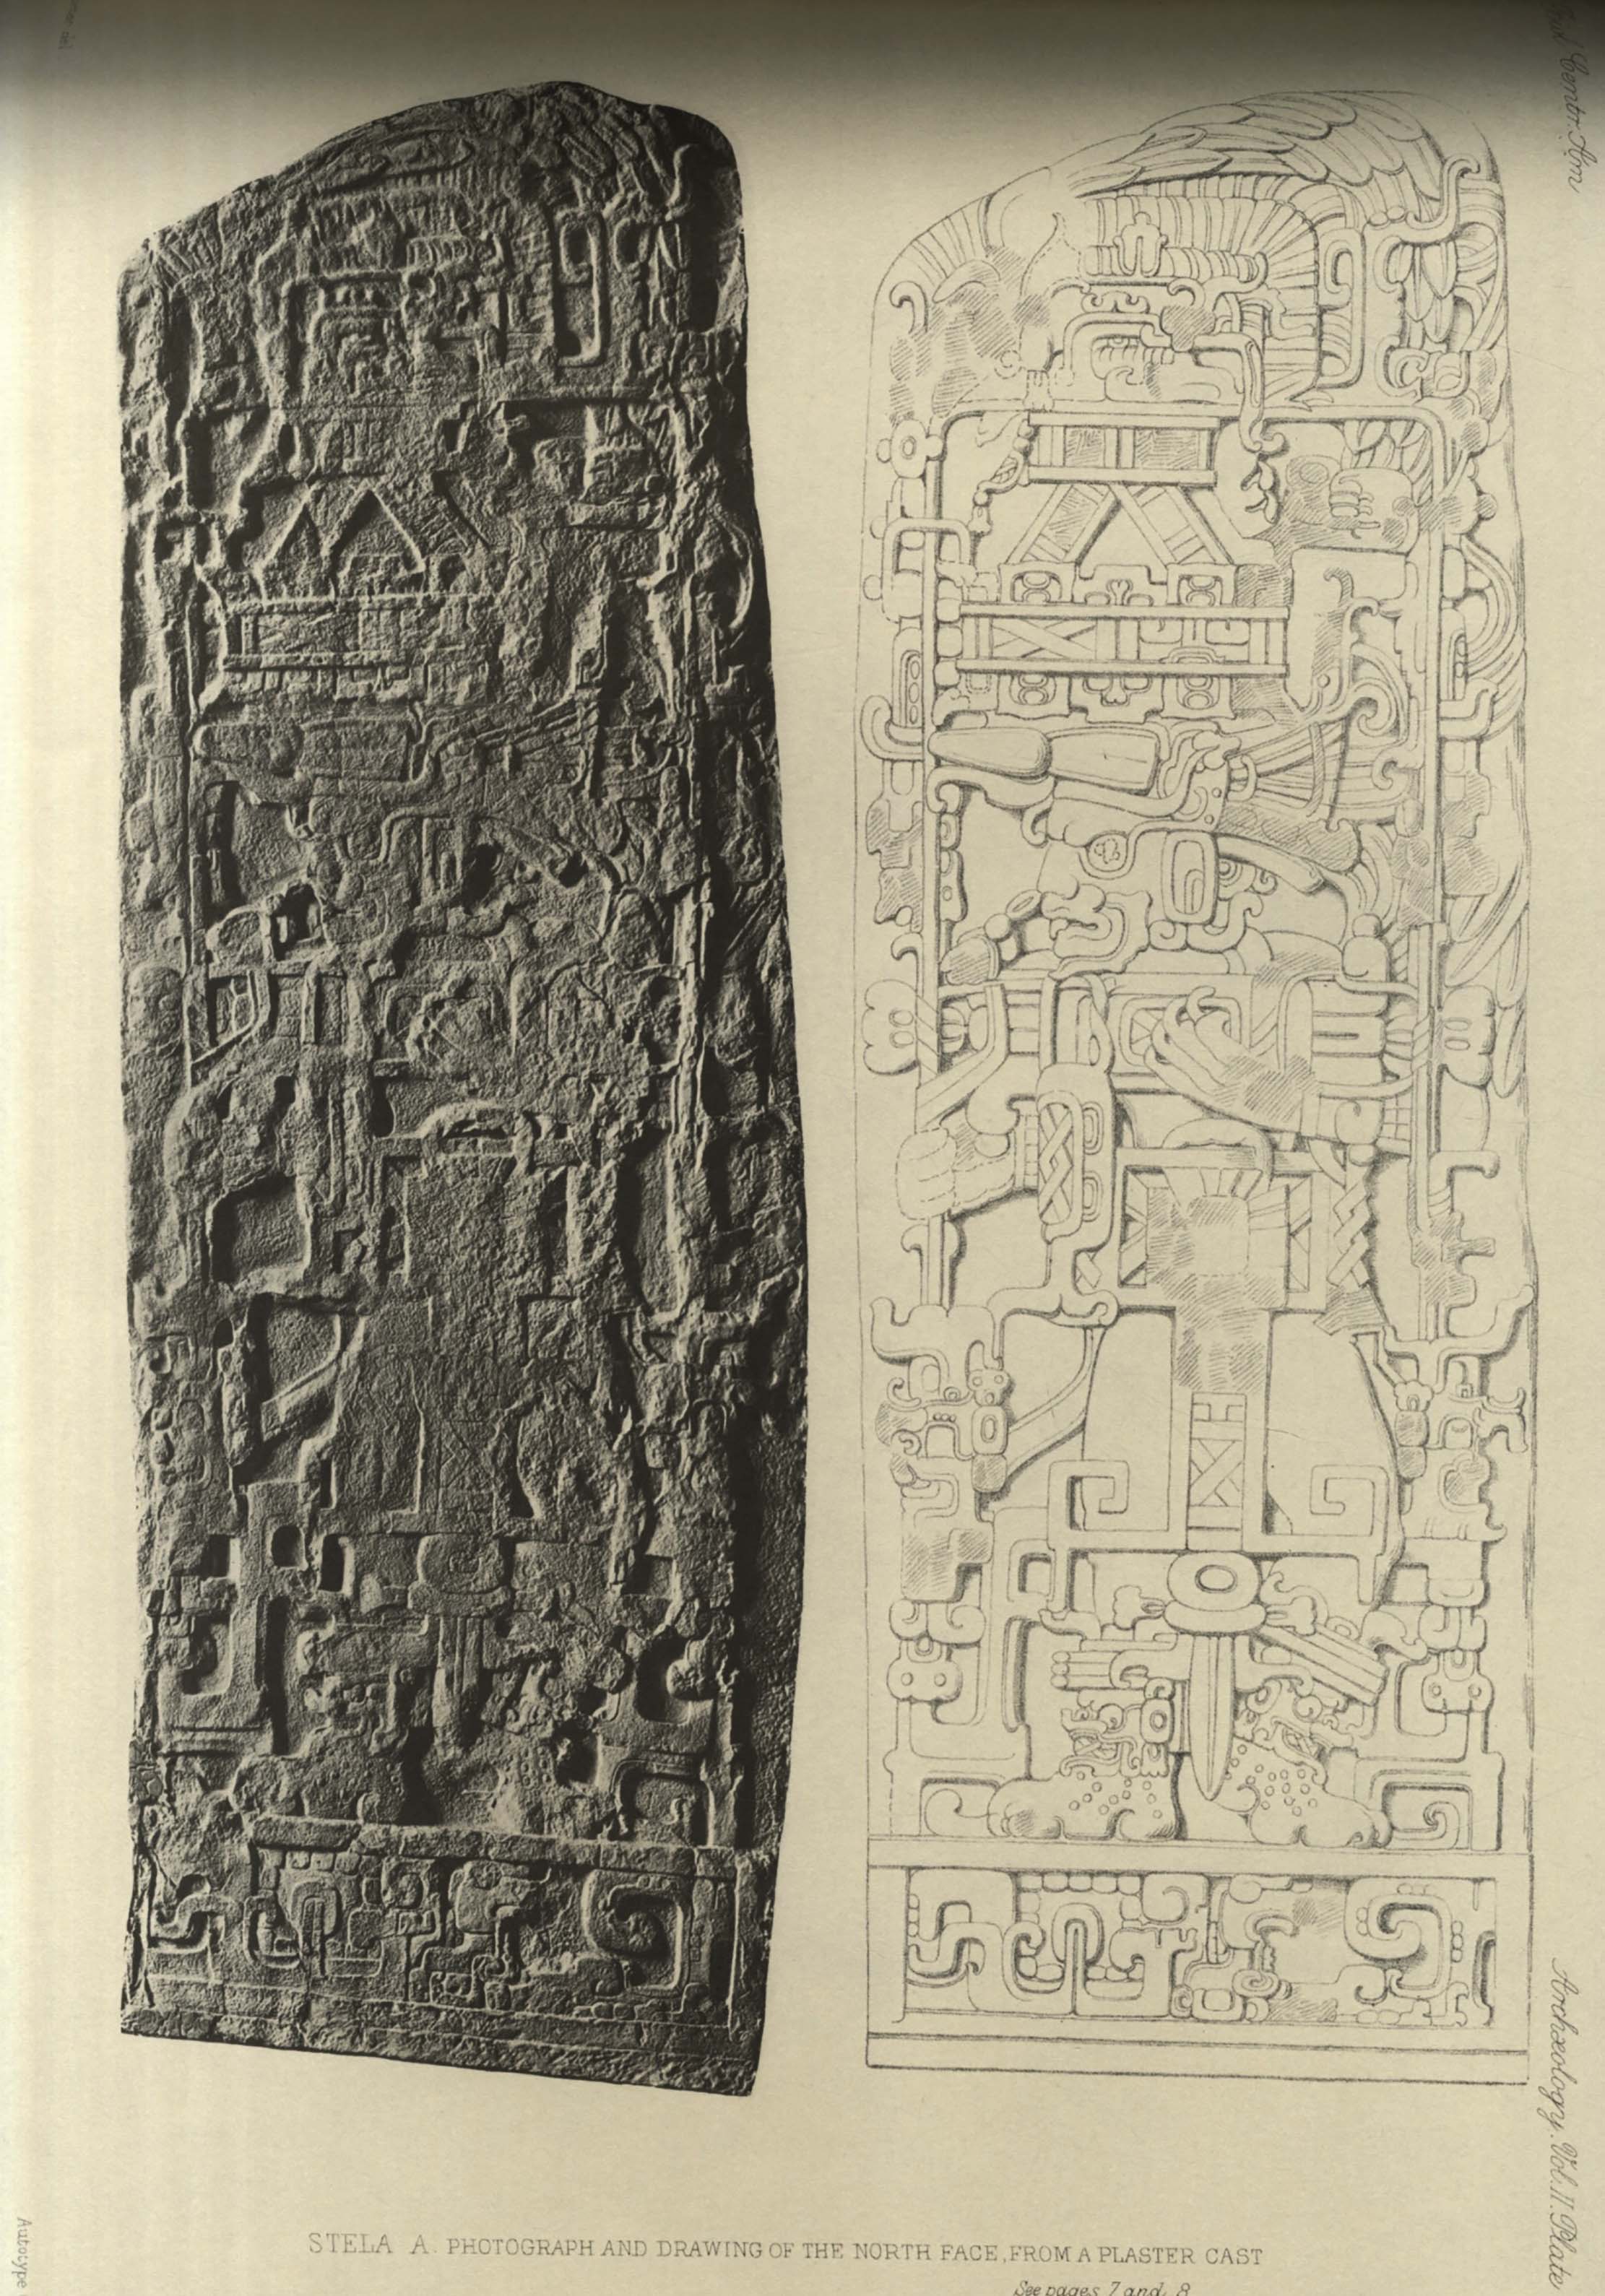 Centr.-Am
Archæology. Vol. II. Plate
STELA A. PHOTOGRAPH AND DRAWING OF THE NORTH FACE, FROM A PLASTER CAST
See pages 7 and 8
Autotype